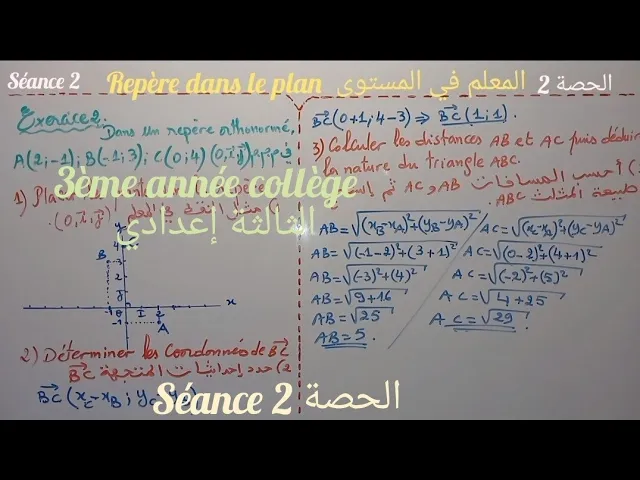 Séance 2 Repère dans le plan المعلم في المستوى الحصة 2
Exercice 2. Dans un repère orthonormé,
A(2;-1); B(-1;3); C(0;4)
1)
(0, i, j)
3ème année collège
الثالثة إعدادي
y
B
3
J
-1 0 I 2 x
-1 A
2) Déterminer les Coordonnées de BC⃗
2) حدد إحداثيات المتجهة BC⃗
BC⃗(x_C-x_B; y_C
BC⃗(0+1; 4-3) ⇒ BC⃗(1;1).
3) Calculer les distances AB et AC puis déduire
la nature du triangle ABC.
3) أحسب المسافات AB و AC ثم
طبيعة المثلث ABC.
AB=√(x_B-x_A)²+(y_B-y_A)²
AB=√(-1-2)²+(3+1)²
AB=√(-3)²+(4)²
AB=√9+16
AB=√25
AB=5.
AC=√(x_C-x_A)²+(y_C-y_A)²
AC=√(0-2)²+(4+1)²
AC=√(-2)²+(5)²
AC=√4+25
AC=√29.
Séance 2 الحصة